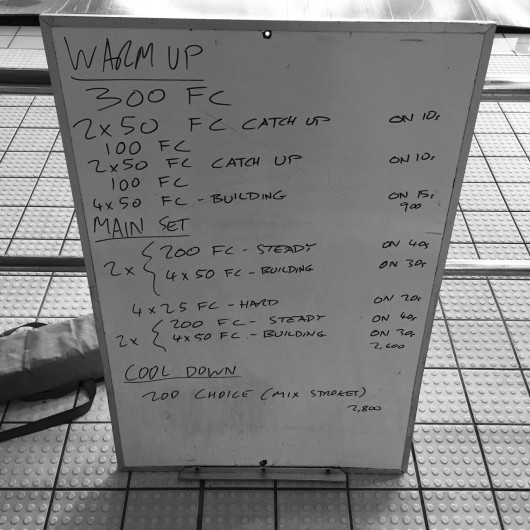 WARM UP
300 FC
2x50 FC CATCH UP ON 10s
100 FC
2x50 FC CATCH UP ON 10s
100 FC
4x50 FC - BUILDING ON 15s
900
MAIN SET
2x { 200 FC - STEADY ON 40s
4x50 FC - BUILDING ON 30s
4x25 FC - HARD ON 20s
2x { 200 FC - STEADY ON 40s
4x50 FC - BUILDING ON 30s
2,600
COOL DOWN
200 CHOICE (MIX STROKES)
2,800